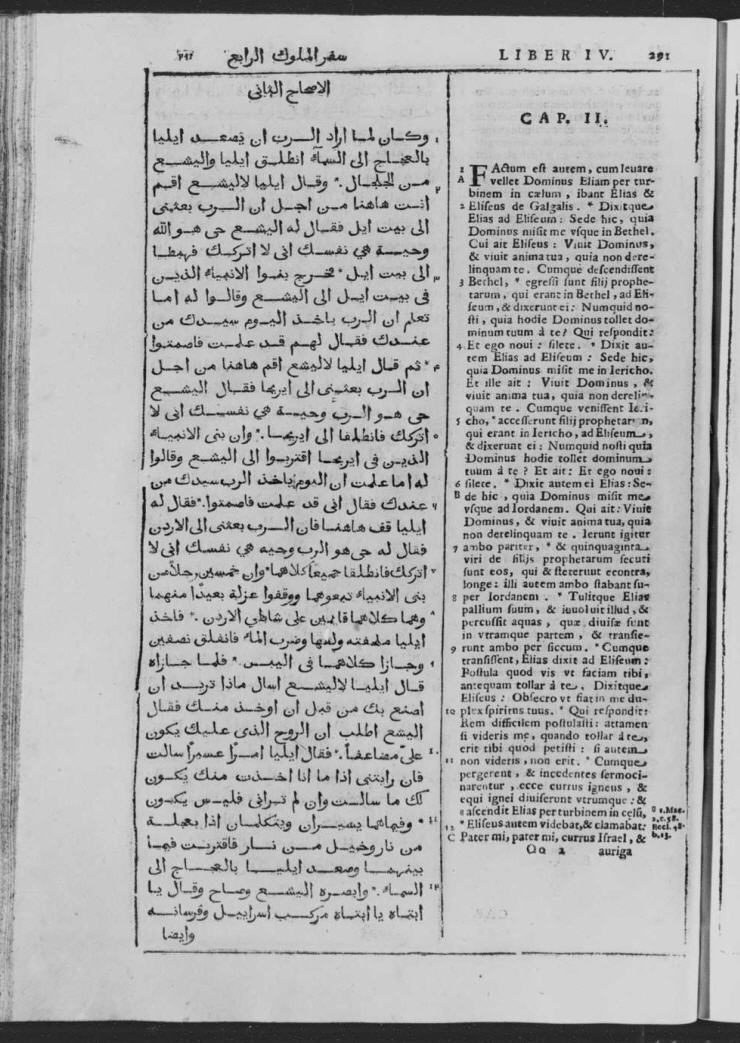 ٢٩١ سفر الملوك الرابع
LIBER IV. 291
الاصحاح الثاني
وكان لما اراد الرب ان يصعد ايليا
بالعجاج الى السمآء انطلق ايليا واليشع
من الجلجال. وقال ايليا لاليشع اقم
انت هاهنا من اجل ان الرب بعثني
الى بيت ايل فقال له اليشع حي هو الله
وحيه هي نفسك اني لا اتركك فهبطا
الى بيت ايل * فخرج بنوا الانبياء الذين
في بيت ايل الى اليشع وقالوا له اما
تعلم ان الرب ياخذ اليوم سيدك من
عندك فقال لهم قد علمت فاصمتوا
* ثم قال ايليا لاليشع اقم هاهنا من اجل
ان الرب بعثني الى ايريحا فقال اليشع
حي هو الرب وحيه هي نفسك اني لا
اتركك فانطلقا الى ايريحا. * وان بني الانبياء
الذين في ايريحا اقتربوا الى اليشع وقالوا
له اما علمت ان اليوم ياخذ الرب سيدك من
عندك فقال اني قد علمت فاصمتوا. * فقال له
ايليا قف هاهنا فان الرب بعثني الى الاردن
فقال له حي هو الرب وحيه هي نفسك اني لا
اتركك فانطلقا جميعا كلاهما * وان خمسين رجلا من
بني الانبياء تبعوهما ووقفوا عزلة بعيدا منهما
وهما كلاهما قايمين على شاطي الاردن. * فاخذ
ايليا ملحفته ولفها وضرب الماء فانفلق نصفين
وجازا كلاهما في اليبس. * فلما جازاه
قال ايليا لاليشع اسال ماذا تريد ان
اصنع بك من قبل ان اوخذ منك فقال
اليشع اطلب ان الروح الذي عليك يكون
علي مضاعفا. * فقال ايليا امرا عسيرا سالت
فان رايتني اذا ما انا اخذت منك يكون
لك ما سالت وان لم تراني فليس يكون
* وفيماهما يسيران ويتكلمان اذا بعجلة
من نار وخيل من نار فاقتربت فيما
بينهما وصعد ايليا بالعجاج الى
السماء. * وابصره اليشع وصاح وقال يا
ابتاه يا ابتاه مركب اسراييل وفرسانه
وايضا
CAP. II.
1 FActum est autem, cum leuare
A vellet Dominus Eliam per tur-
binem in cælum, ibant Elias &
2 Eliseus de Galgalis. * Dixitque
Elias ad Eliseum: Sede hic, quia
Dominus misit me vsque in Bethel.
Cui ait Eliseus: Viuit Dominus,
& viuit anima tua, quia non dere-
linquam te. Cumque descendissent
3 Bethel, * egressi sunt filij prophe-
tarum, qui erant in Bethel, ad Eli-
seum, & dixerunt ei: Numquid no-
sti, quia hodie Dominus tollet do-
minum tuum à te? Qui respondit:
4 Et ego noui: silete. * Dixit au-
tem Elias ad Eliseum: Sede hic,
quia Dominus misit me in Iericho.
Et ille ait: Viuit Dominus, &
viuit anima tua, quia non derelin-
quam te. Cumque venissent Ieri-
5 cho, * accesserunt filij prophetarum,
qui erant in Iericho, ad Eliseum,
& dixerunt ei: Numquid nosti quia
Dominus hodie tollet dominum
tuum à te? Et ait: Et ego noui:
6 silete. * Dixit autem ei Elias: Se-
B de hic, quia Dominus misit me
vsque ad Iordanem. Qui ait: Viuit
Dominus, & viuit anima tua, quia
non derelinquam te. Ierunt igitur
7 ambo pariter, * & quinquaginta
viri de filijs prophetarum secuti
sunt eos, qui & steterunt econtra,
longe: illi autem ambo stabant su-
8 per Iordanem. * Tulitque Elias
pallium suum, & inuoluit illud, &
percussit aquas, quæ diuisæ sunt
in vtramque partem, & transie-
9 runt ambo per siccum. * Cumque
transissent, Elias dixit ad Eliseum:
Postula quod vis vt faciam tibi,
antequam tollar à te. Dixitque
Eliseus: Obsecro vt fiat in me du-
10 plex spiritus tuus. * Qui respondit:
Rem difficilem postulasti: attamen
si videris me, quando tollar à te,
erit tibi quod petisti: si autem
11 non videris, non erit. * Cumque
pergerent, & incedentes sermoci-
narentur, ecce currus igneus, &
equi ignei diuiserunt vtrumque: &
ascendit Elias per turbinem in cælū,
12 * Eliseus autem videbat, & clamabat:
C Pater mi, pater mi, currus Israel, &
1. Mac.
2. c. 58.
Eccl. 48.
b. 13.
Oo 2 auriga